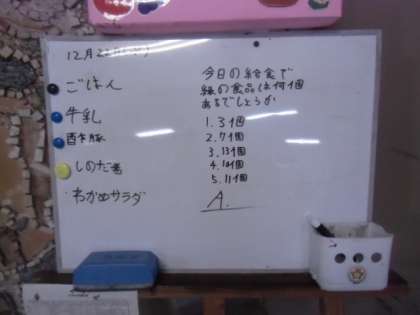 ごはん
牛乳
酢豚
しのだ巻
わかめサラダ
今日の給食で
緑の食品は何個
あるでしょうか
1. 3個
2. 7個
3. 13個
5. 11個
A.